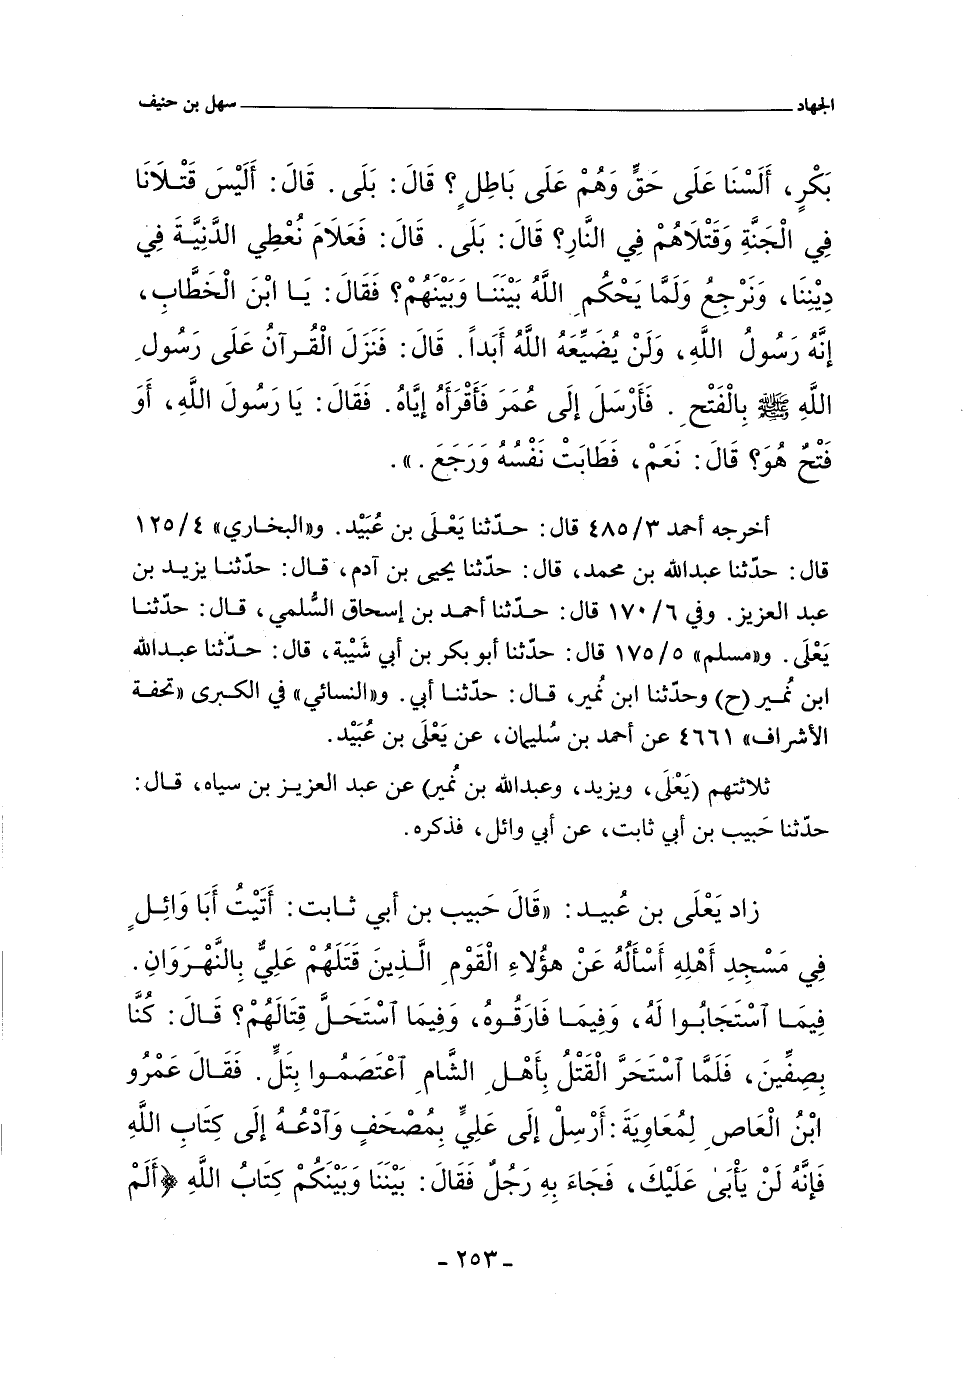 الجهاد ــــــــــ سهل بن حنيف
بَكْرٍ، أَلَسْنَا عَلَى حَقٍّ وَهُمْ عَلَى بَاطِلٍ؟ قَالَ: بَلَى. قَالَ: أَلَيْسَ قَتْلَانَا
فِي الْجَنَّةِ وَقَتْلَاهُمْ فِي النَّارِ؟ قَالَ: بَلَى. قَالَ: فَعَلَامَ نُعْطِي الدَّنِيَّةَ فِي
دِيْنِنَا، وَنَرْجِعُ وَلَمَّا يَحْكُمِ اللَّهُ بَيْنَنَا وَبَيْنَهُمْ؟ فَقَالَ: يَا ابْنَ الْخَطَّابِ،
إِنَّهُ رَسُولُ اللَّهِ، وَلَنْ يُضَيِّعَهُ اللَّهُ أَبَداً. قَالَ: فَنَزَلَ الْقُرآنُ عَلَى رَسُولِ
اللَّهِ ﷺ بِالْفَتْحِ. فَأَرْسَلَ إِلَى عُمَرَ فَأَقْرَأَهُ إِيَّاهُ. فَقَالَ: يَا رَسُولَ اللَّهِ، أَوَ
فَتْحٌ هُوَ؟ قَالَ: نَعَمْ، فَطَابَتْ نَفْسُهُ وَرَجَعَ.».
أخرجه أحمد ٤٨٥/٣ قال: حدّثنا يَعْلَى بن عُبَيْد. و«البخاري» ١٢٥/٤
قال: حدّثنا عبدالله بن محمد، قال: حدّثنا يحيى بن آدم، قال: حدّثنا يزيد بن
عبد العزيز. وفي ١٧٠/٦ قال: حدّثنا أحمد بن إسحاق السُّلمي، قال: حدّثنا
يَعْلَى. و«مسلم» ١٧٥/٥ قال: حدّثنا أبو بكر بن أبي شَيْبة، قال: حدّثنا عبدالله
ابن نُمير (ح) وحدّثنا ابن نُمير، قال: حدّثنا أبي. و«النسائي» في الكبرى «تحفة
الأشراف» ٤٦٦١ عن أحمد بن سُليمان، عن يَعْلَى بن عُبَيْد.
ثلاثتهم (يَعْلَى، ويزيد، وعبدالله بن نُمير) عن عبد العزيز بن سياه، قال:
حدّثنا حَبيب بن أبي ثابت، عن أبي وائل، فذكره.
زاد يَعْلَى بن عُبيد: «قَالَ حَبيب بن أبي ثابت: أَتَيْتُ أَبَا وَائِلٍ
فِي مَسْجِدِ أَهْلِهِ أَسْأَلُهُ عَنْ هؤُلاءِ الْقَوْمِ الَّذِينَ قَتَلَهُمْ عَلِيٌّ بِالنَّهْرَوَانِ.
فِيمَا ٱسْتَجَابُوا لَهُ، وَفِيمَا فَارَقُوهُ، وَفِيمَا ٱسْتَحَلَّ قِتَالَهُمْ؟ قَالَ: كُنَّا
بِصِفِّينَ، فَلَمَّا ٱسْتَحَرَّ الْقَتْلُ بِأَهْلِ الشَّامِ ٱعْتَصَمُوا بِتَلٍّ. فَقَالَ عَمْرُو
ابْنُ الْعَاصِ لِمُعَاوِيَةَ: أَرْسِلْ إِلَى عَلِيٍّ بِمُصْحَفٍ وَٱدْعُهُ إِلَى كِتَابِ اللَّهِ
فَإِنَّهُ لَنْ يَأْبَىٰ عَلَيْكَ، فَجَاءَ بِهِ رَجُلٌ فَقَالَ: بَيْنَنَا وَبَيْنَكُمْ كِتَابُ اللَّهِ ﴿أَلَمْ
- ٢٥٣ -